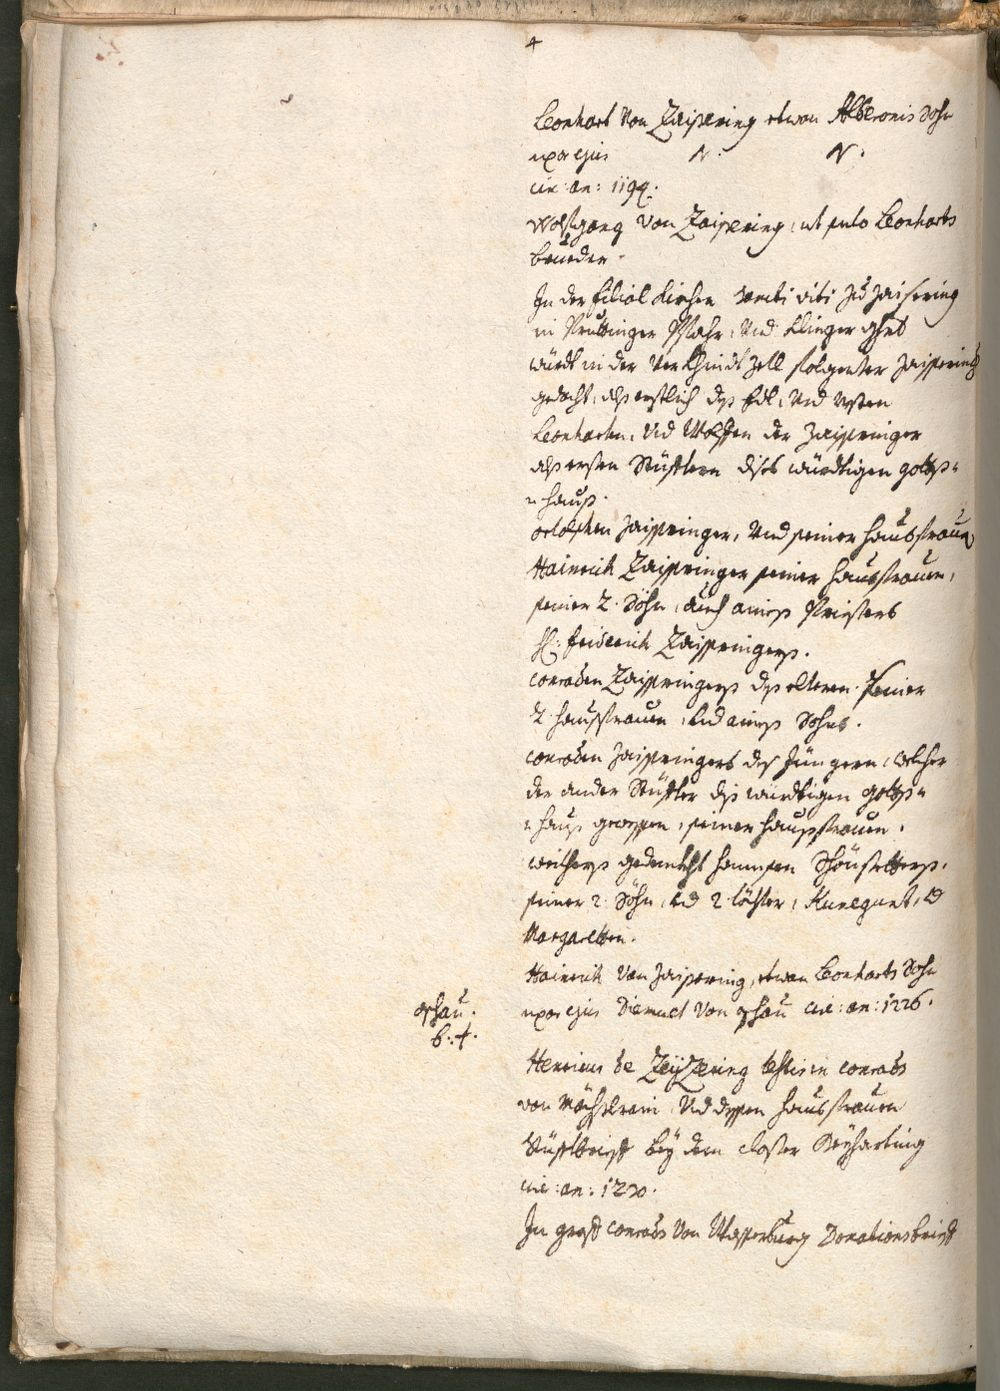 4
Leonhart von Zaisering etwan Alberonis Sohn
uxor ejus N. N.
cir: an: 1194.
Wolfgang von Zaisering, ut puto Leonharts
brueder.
In der filial Kirchen Sancti viti zu Zaisering
in Pruttinger Pfahr, Und Klinger ghrt
würdt in der Verkhindt Zell folgenter Zaisering
gedacht, alß erstlich deß Edl, Und Vesten
Leonharten, Und Wolfen der Zaisseringer
alß ersten Stüfftern dises würdtigen gottß-
-hauß.
Zaisseringer, Und seiner hausfrauen
Hainrich Zaisseringer seiner hausfrauen,
seiner 2. Söhn, auch aines Priesters
H: Friderich Zaisseringerß.
Conraden Zaisseringerß deß elteren. seiner
2 haussfrauen, Und aineß Sohns.
Conraden Zaisseringers deß Jüngern, welcher
der ander Stüffter diß würdtigen gottß-
-hauß gewessen, seiner haussfrauen.
weitherß gedenkht hannsen Schönstetterß.
seiner 2. Söhn, Und 2 töchter, Kunegunt, Und
Margaretten.
Hainrich von Zaisering, etwan Leonharts Sohn
uxor ejus Diemuet von aschau cir: an: 1226.
aschau.
b: 4.
Henricus de ZeiyZering testis in Conrads
von Und dessen hausfrauen
Stüfftbrieff bey dem closter Beyharting
cir: an: 1230.
In graff Conrads von Wasserburg Donationsbrieff